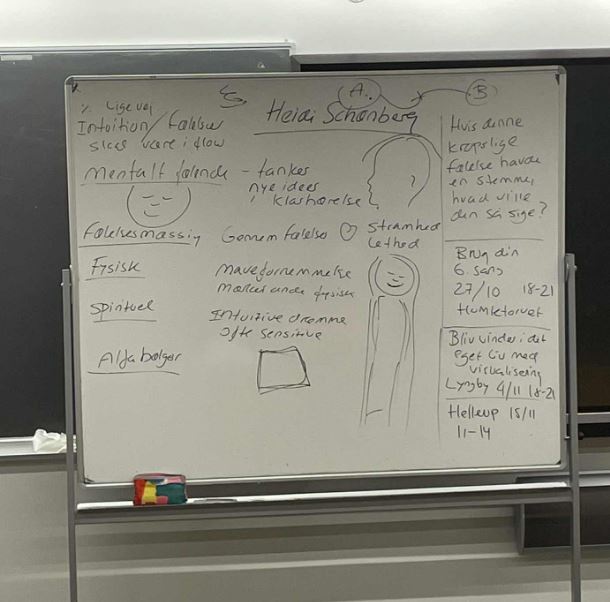 A..
B
Heidi Schønberg
% Lige vej
Intuition/følelser
skal være i flow
Mentalt følende - tanker
nye ideer
klarhørelse
Følelsesmæssig Gennem følelser
stramhed
Lethed
Fysisk
Mavefornemmelse
Mærket ande fysisk
Spirituel
Intuitive drømme
Ofte sensitive
Alfa bølger
Hvis denne
kropslige
følelse havde
en stemme,
hvad ville
den så sige?
Brug din
6. sans
27/10 18-21
Bliv vinder i dit
eget liv med
visualisering
Lyngby 4/11 18-21
Hellerup 15/11
11-14